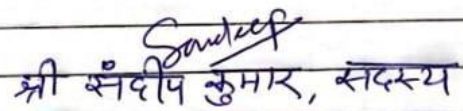 Sandeep
श्री संदीप कुमार, सदस्य